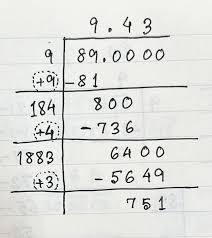 9.43
9 89.0000
+9 -81
184 800
+4 -736
1883 6400
+3 -5649
751